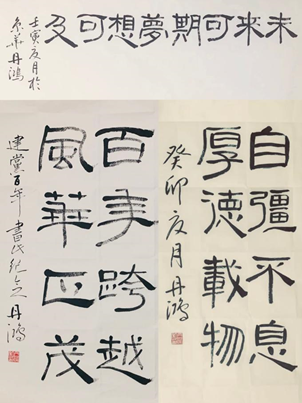 未来可期夢想可及
壬寅夏月於
京華丹鴻
自彊不息
厚德載物
癸卯夏月丹鴻
百年跨越
風華正茂
建黨百年書以紀之丹鴻